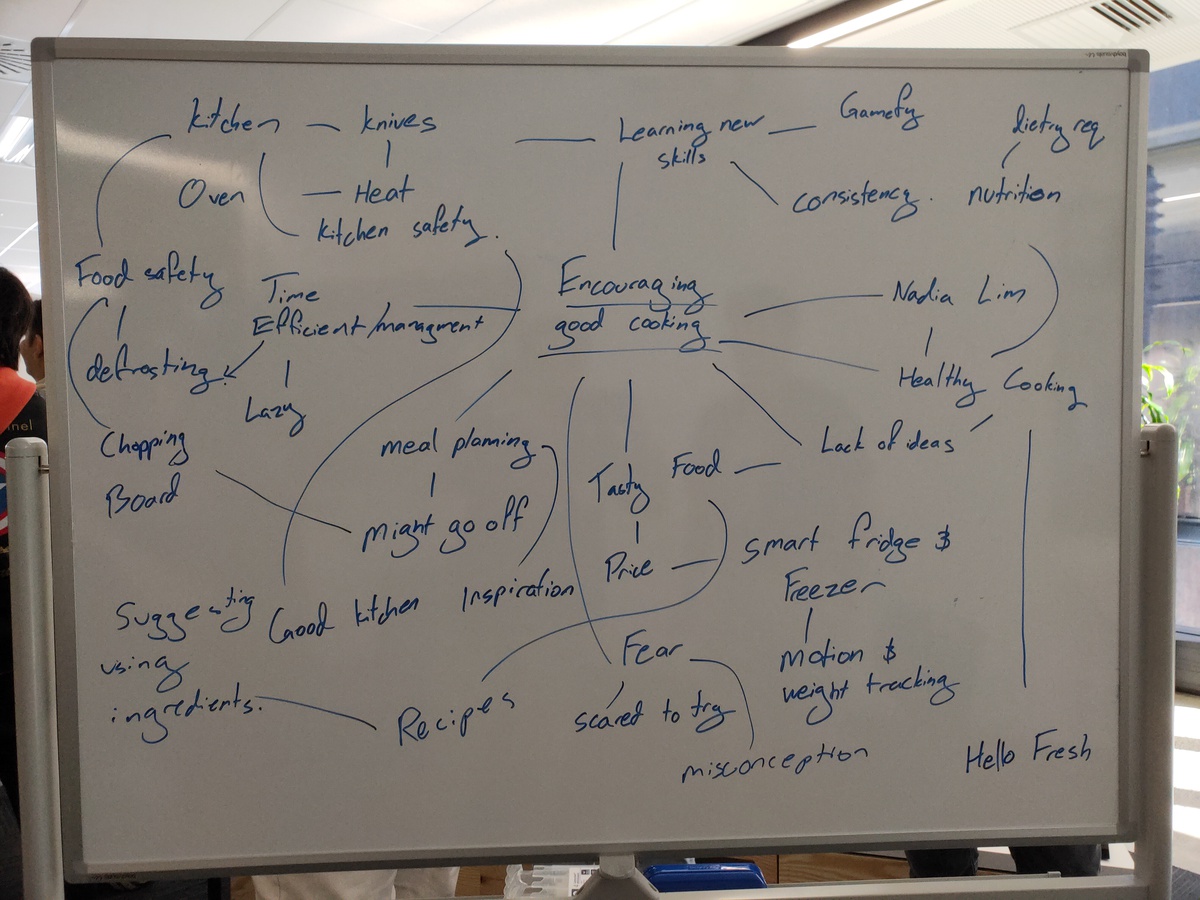 Kitchen
knives
Learning new
skills
Gamefy
dietry req
Oven
Heat
consistency.
nutrition
kitchen safety.
Food safety
Time
Efficient/managment
Encouraging
good cooking
Nadia Lim
defrosting.
Lazy
Healthy Cooking
Chopping
Board
meal planning
Tasty Food
Lack of ideas
might go off
Price
smart fridge &
Freezer
Suggesting
using
ingredients.
Good kitchen
Inspiration
Fear
scared to try
motion &
weight tracking
Recipes
misconception
Hello Fresh